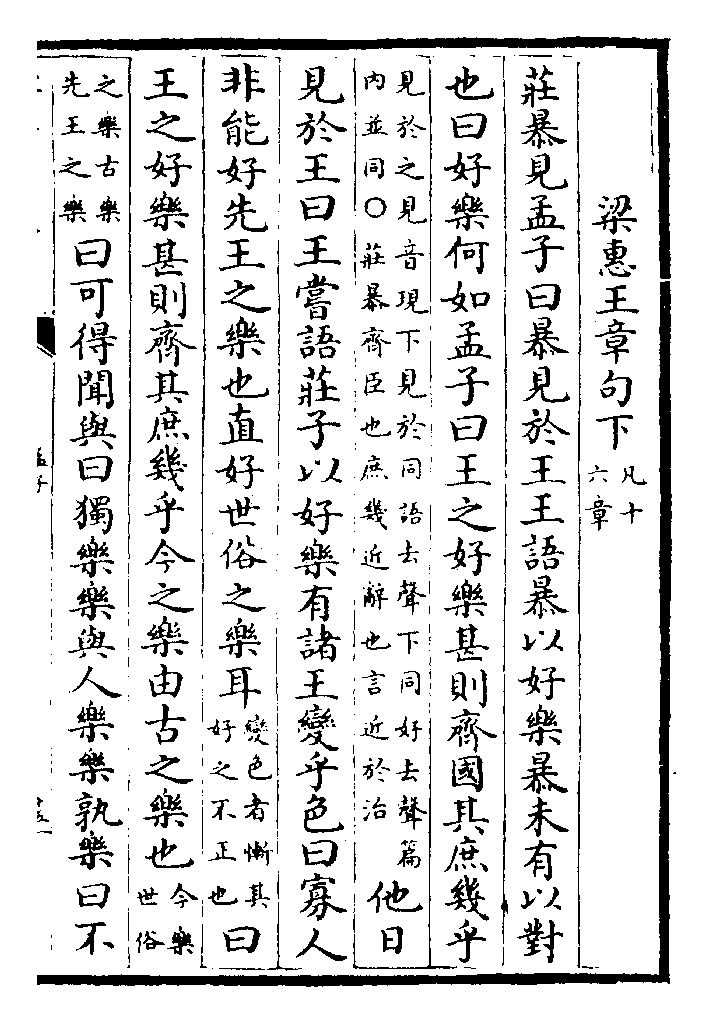 梁惠王章句下 凡十六章
莊暴見孟子曰暴見於王王語暴以好樂暴未有以對
也曰好樂何如孟子曰王之好樂甚則齊國其庶幾乎
見於之見音現下見於同語去聲下同好去聲篇內並同○莊暴齊臣也庶幾近辭也言近於治 他日
見於王曰王嘗語莊子以好樂有諸王變乎色曰寡人
非能好先王之樂也直好世俗之樂耳 變色者慚其好之不正也 曰
王之好樂甚則齊其庶幾乎今之樂由古之樂也 今樂世俗
之樂古樂先王之樂 曰可得聞與曰獨樂樂與人樂樂孰樂曰不